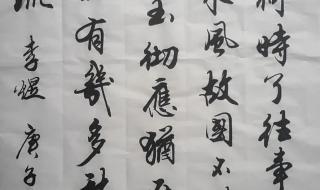 何時了往事
風故國不
玉砌應猶
有幾多愁
流 李煜 庚子